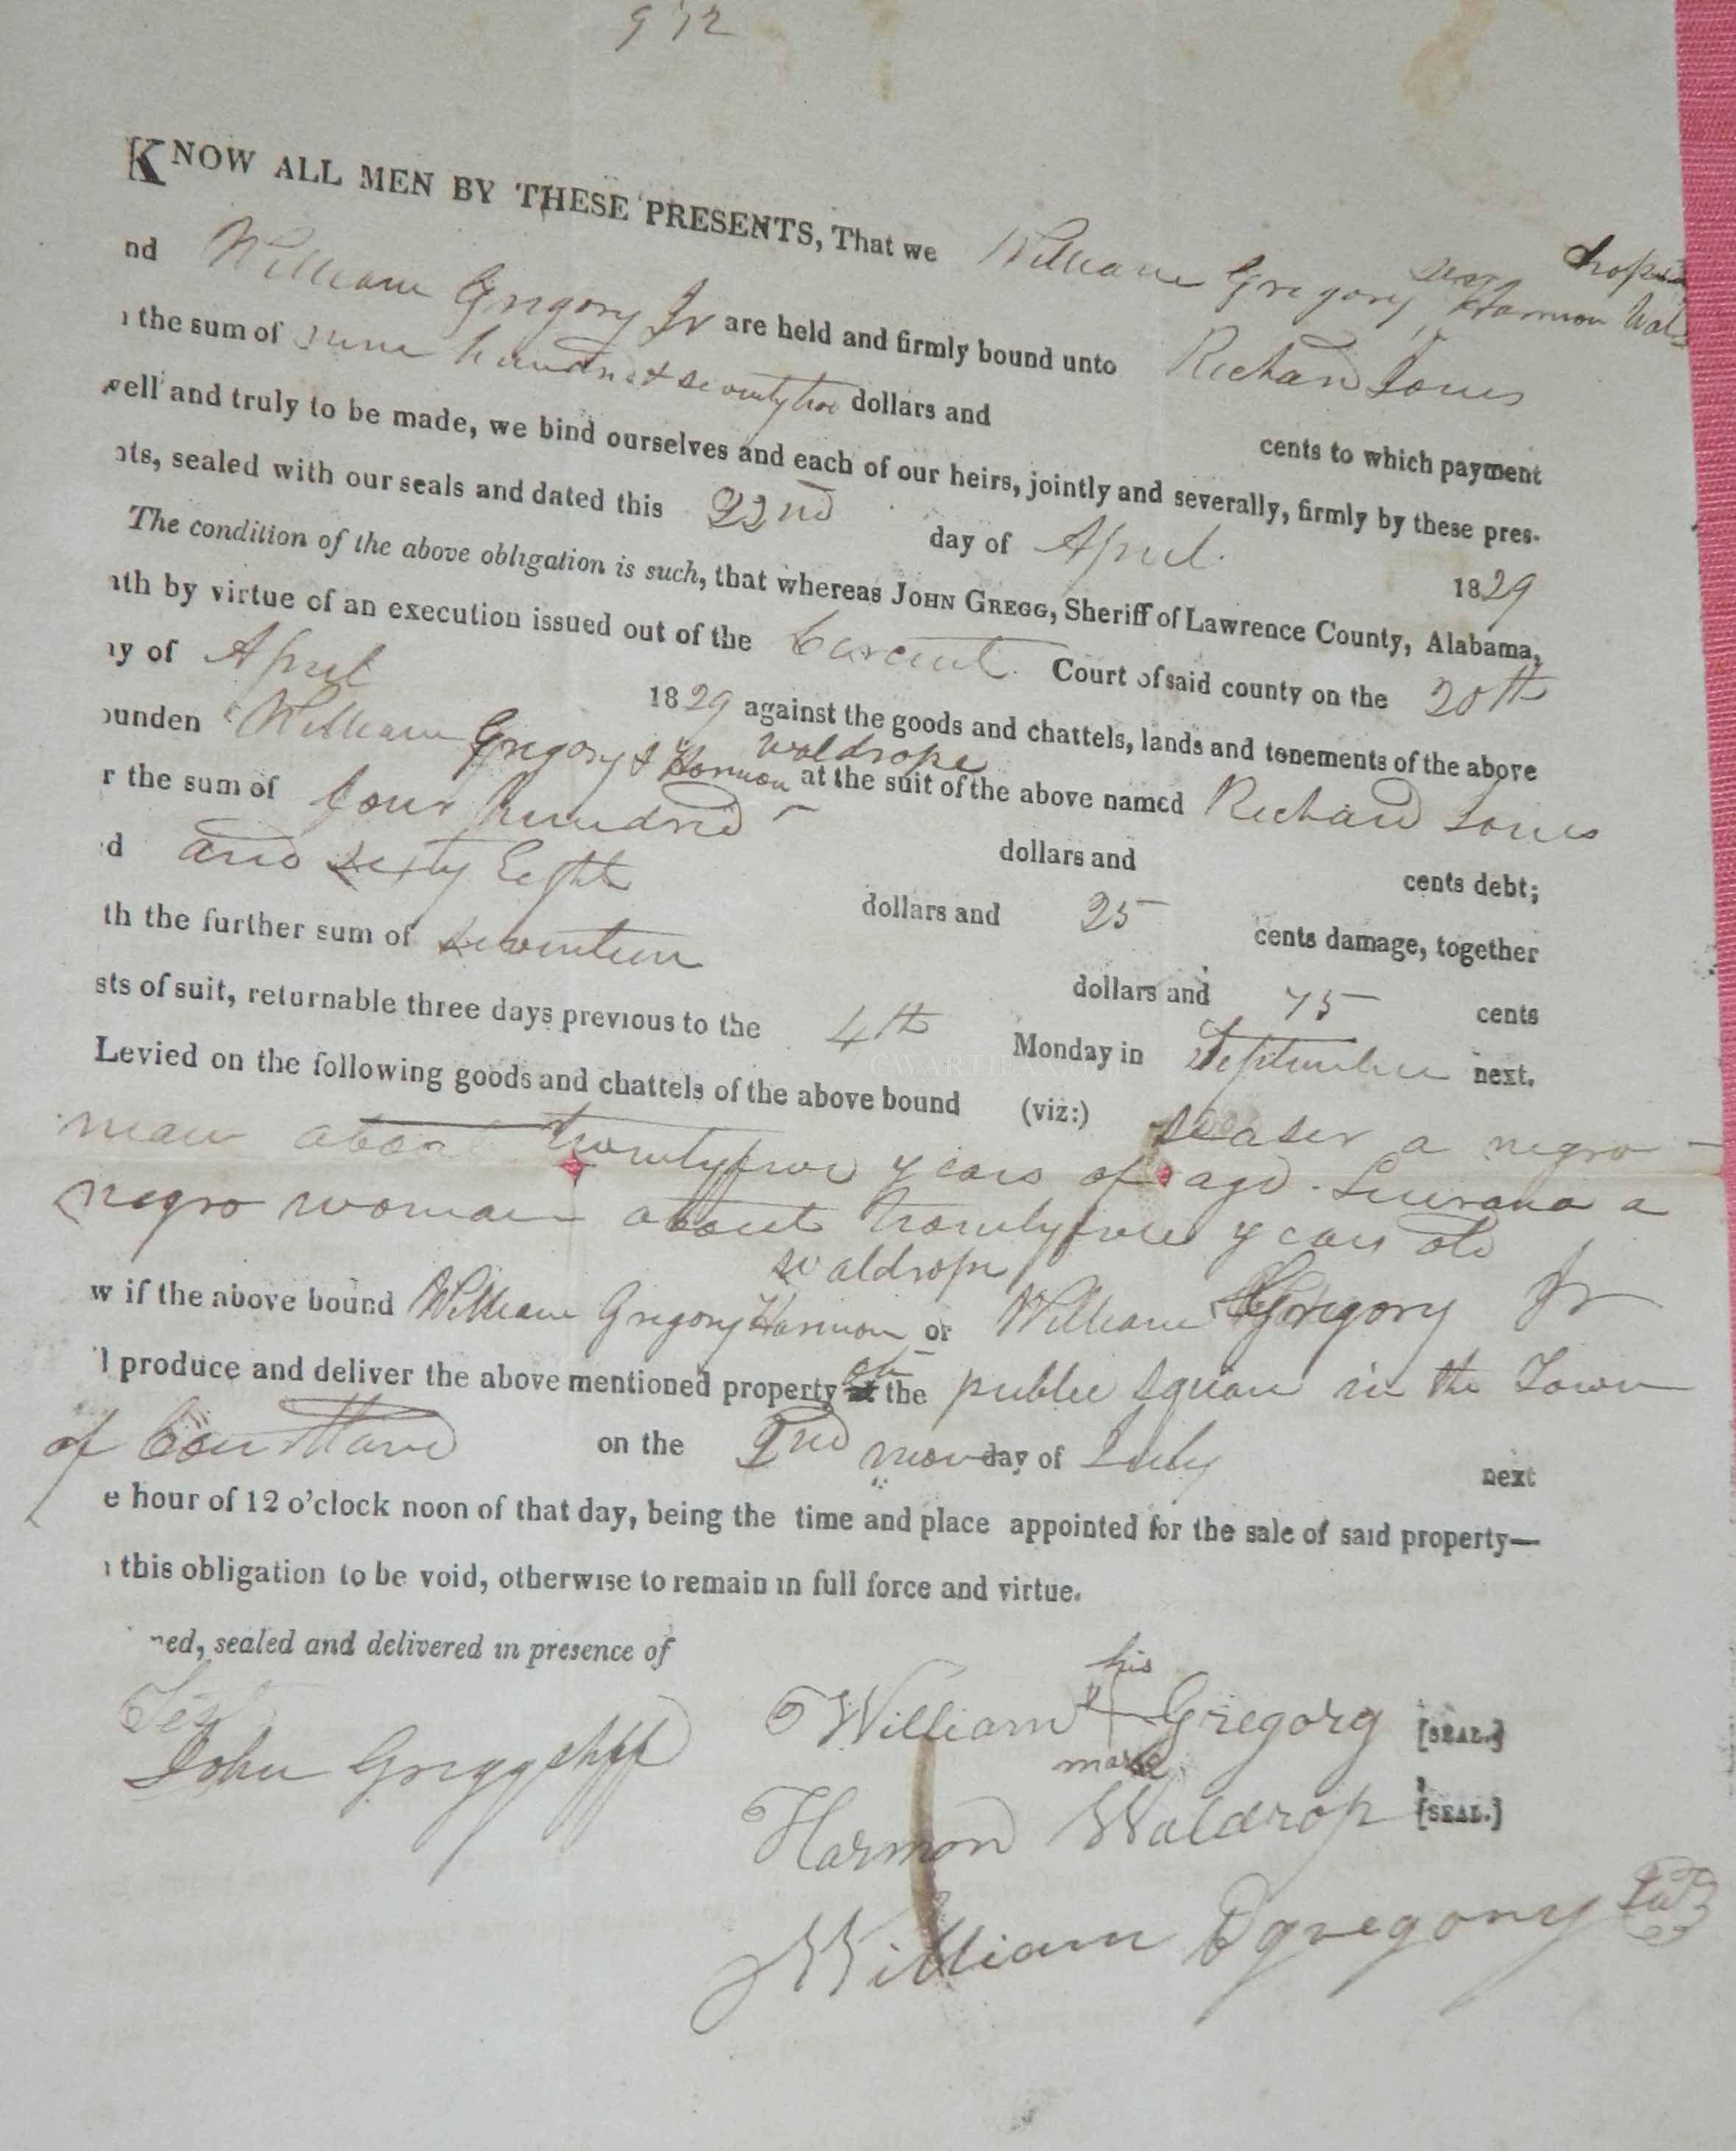 972
KNOW ALL MEN BY THESE PRESENTS, That we William Gregory senr Harmon Waldrope
nd William Gregory Jr are held and firmly bound unto Richard Jones
the sum of nine hundred & seventy two dollars and cents to which payment
well and truly to be made, we bind ourselves and each of our heirs, jointly and severally, firmly by these pres-
nts, sealed with our seals and dated this 22nd day of April 1829
The condition of the above obligation is such, that whereas JOHN GREGG, Sheriff of Lawrence County, Alabama,
ath by virtue of an execution issued out of the Circuit Court of said county on the 20th
ay of April 1829 against the goods and chattels, lands and tenements of the above
ounden William Gregory & Harmon Waldrope at the suit of the above named Richard Jones
r the sum of four hundred dollars and cents debt;
d and sixty Eight dollars and 25 cents damage, together
th the further sum of seventeen dollars and 75 cents
sts of suit, returnable three days previous to the 4th Monday in September next.
Levied on the following goods and chattels of the above bound (viz:) seaser a negro
man about twentyfive years of age. Lurana a
negro woman about twentyfive years old
w if the above bound William Gregory Harmon waldrope or William Gregory Jr
l produce and deliver the above mentioned property on the public square in the Town
of Courtland on the 2nd monday of July next
e hour of 12 o'clock noon of that day, being the time and place appointed for the sale of said property—
this obligation to be void, otherwise to remain in full force and virtue.
ned, sealed and delivered in presence of
Test
John Gregg shff
William his mark Gregorg [SEAL.]
Harmon Waldrop [SEAL.]
William Gregory